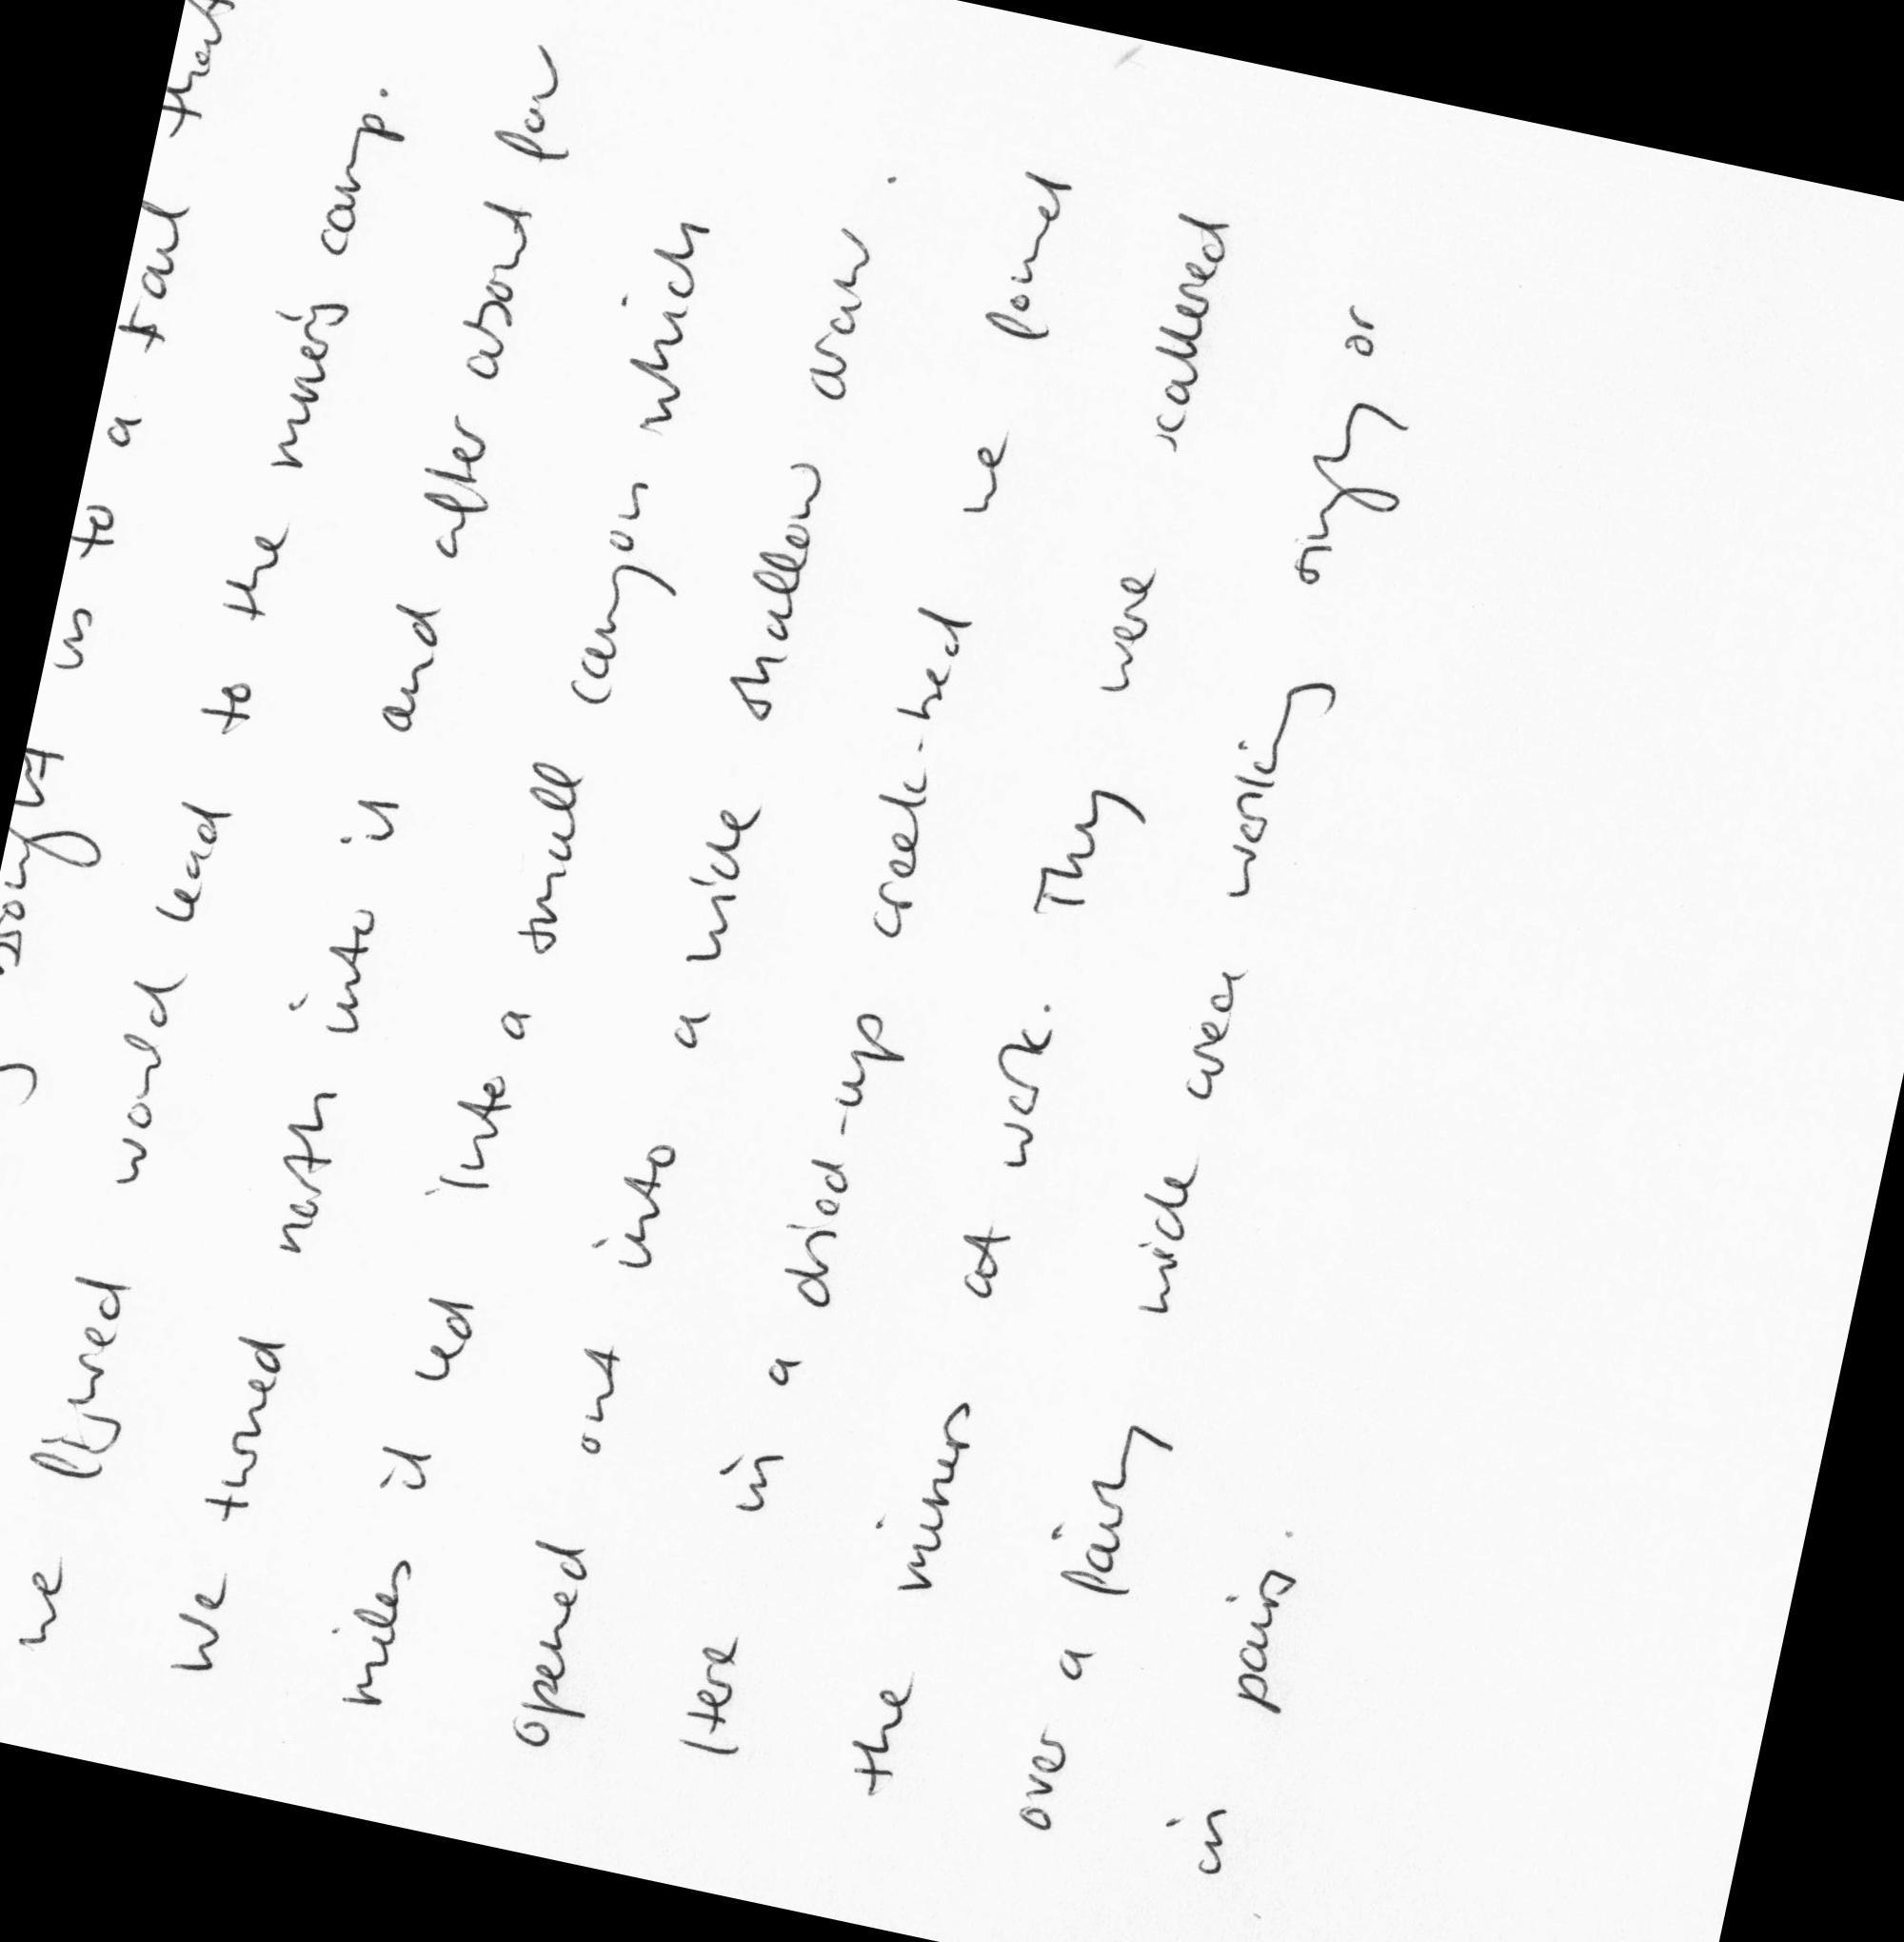 brought us to a trail that
we figured would lead to the miners camp.
We turned north into it and after about four
miles it led into a small canyon which
opened out into a wide shallow draw.
Here in a dried-up creek-bed we found
the miners at work. They were scattered
over a fairly wide area working singly or
in pairs.